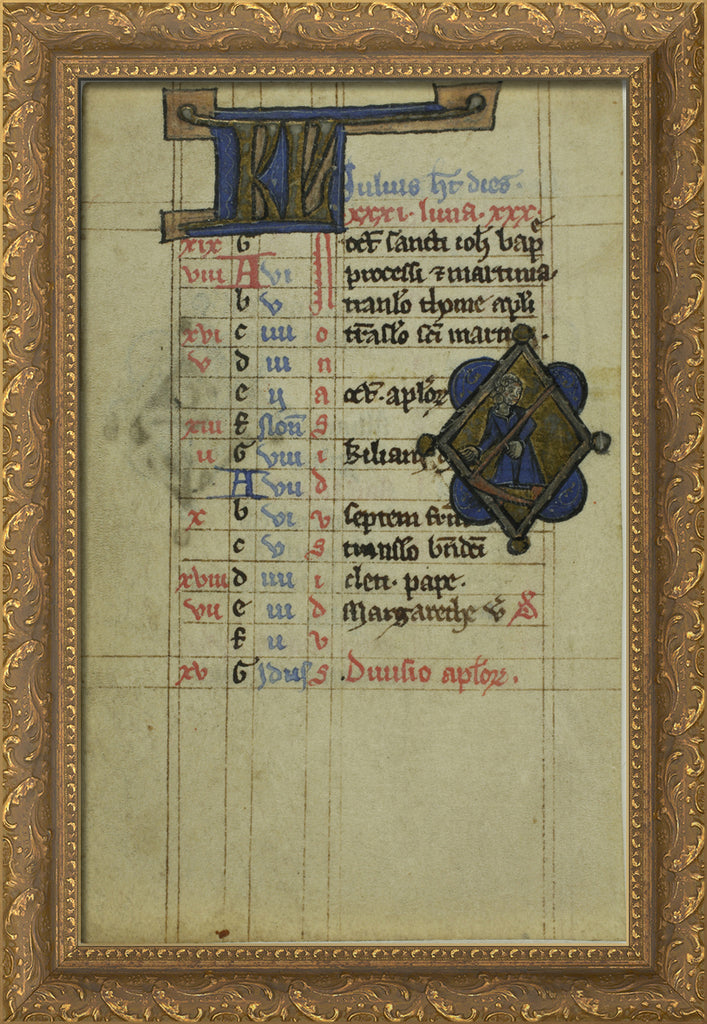 KL
Iulius ht dies.
xxxi. luna. xxx.
xix G oct sancti ioh bape
viii A vi processi ⁊ martinia
b v translo thome apli
xvi c iiii o traslo sci martini.
v d iii n
e ij a oct. aplor
xiii f non s
ii G viii i Kiliani
A vii d
x b vi v septem frm
c v s translo bndci
xviii d iiii i cleti. pape.
vii e iii d Margarethe v
f ii v
xv G Idus s Diuisio aplor.